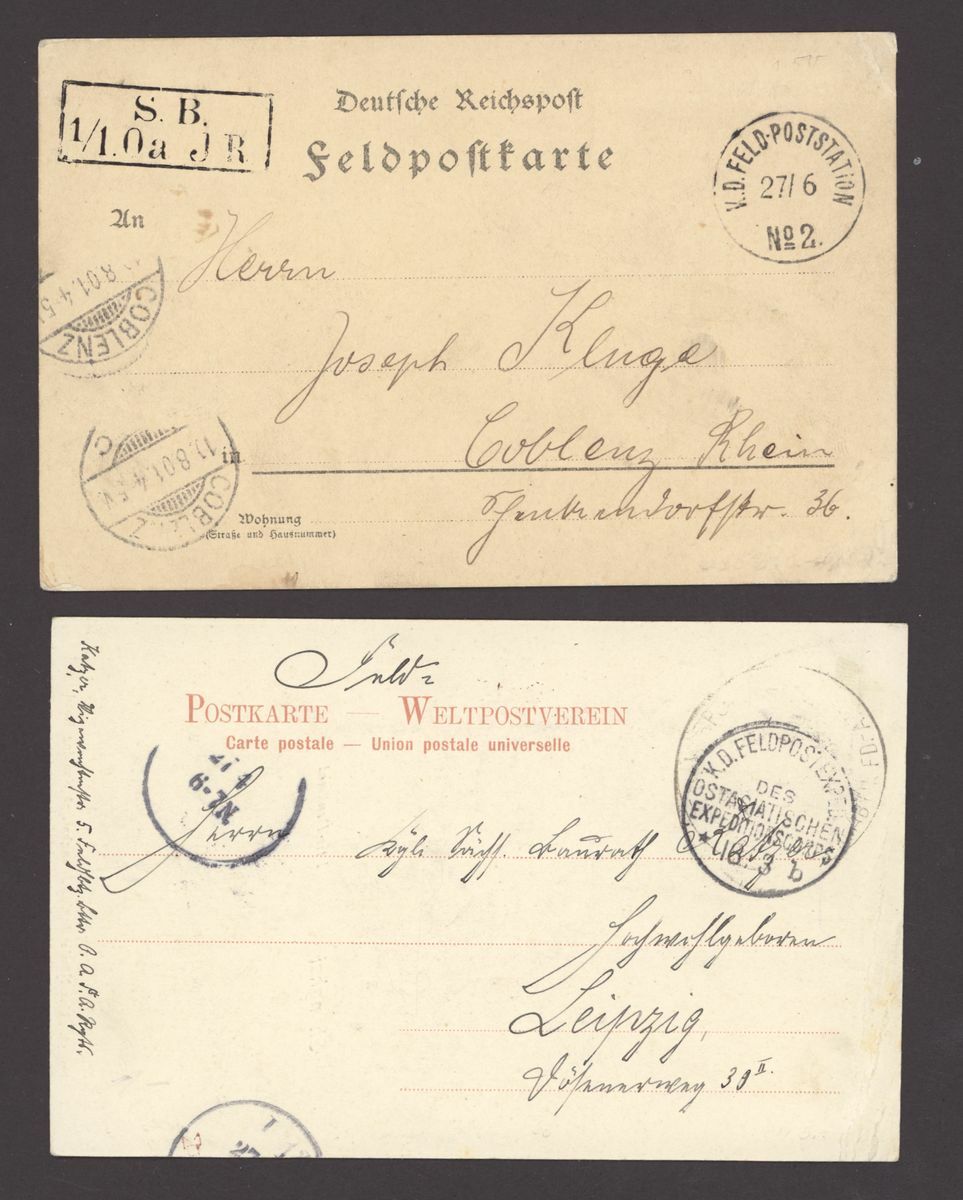 S. B.
1/1. Oa J R
Deutsche Reichspost
Feldpostkarte
K.D. FELD-POSTSTATION
27/6
No 2.
An
Herrn
8.01.4-5
COBLENZ
Joseph Kluge
in Coblenz Rhein
11.8.01.4-5N.
COBLENZ
C
Wohnung
(Straße und Hausnummer)
Schenkendorfstr. 36.
Feld=
POSTKARTE — WELTPOSTVEREIN
Carte postale — Union postale universelle
K.D. FELDPOSTEXPED.
DES
OSTASIATISCHEN
EXPEDITIONSCORPS
16 3 b
6-7N
Herrn
Kgl. Sächs. Baurath
Hochwohlgeboren
Leipzig,
Dösenerweg 39 II.
5. Feldbttr. O. A. F. A. Rgts.
27